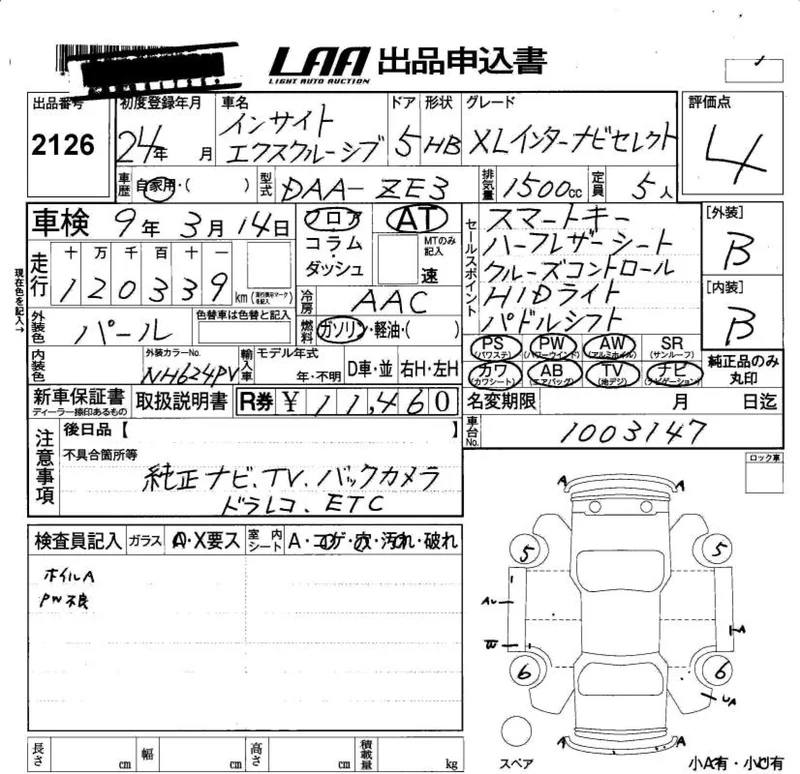 LAA 出品申込書
LIGHT AUTO AUCTION
出品番号
2126
初度登録年月
24年 月
車名
インサイト
エクスクルーシブ
ドア
5
形状
HB
グレード
XLインターナビセレクト
評価点
4
車歴
自家用・( )
型式
DAA-ZE3
排気量
1500cc
定員
5人
車検 9年 3月 14日
現在色を記入→
走行
十 万 千 百 十 一
120339
km
フロア
コラム・
ダッシュ
AT
MTのみ記入
速
冷房
AAC
燃料
ガソリン・軽油・( )
外装色
パール
色替車は色替と記入
内装色
外装カラーNo.
NH624PV
輸入車
モデル年式
年・不明
D車・並
右H・左H
セールスポイント
スマートキー
ハーフレザーシート
クルーズコントロール
HIDライト
パドルシフト
[外装]
B
[内装]
B
PS
(パワステ)
PW
(パワーウインド)
AW
(アルミホイル)
SR
(サンルーフ)
カワ
(カワシート)
AB
(エアバッグ)
TV
(地デジ)
ナビ
(ナビゲーション)
純正品のみ
丸印
新車保証書
ディーラー捺印あるもの
取扱説明書
R券 ¥ 11,460
名変期限 月 日迄
車台No.
1003147
注意事項
後日品【 】
不具合箇所等
純正ナビ、TV、バックカメラ
ドラレコ、ETC
ロック車
検査員記入
ガラス
A・X要ス
室内シート
A・コゲ・穴・汚れ・破れ
ホイルA
PW不良
A A
5 5
AU
A
W
6 6
UA
A A
スペア
小A有・小U有
長さ cm
幅 cm
高さ cm
積載量 kg